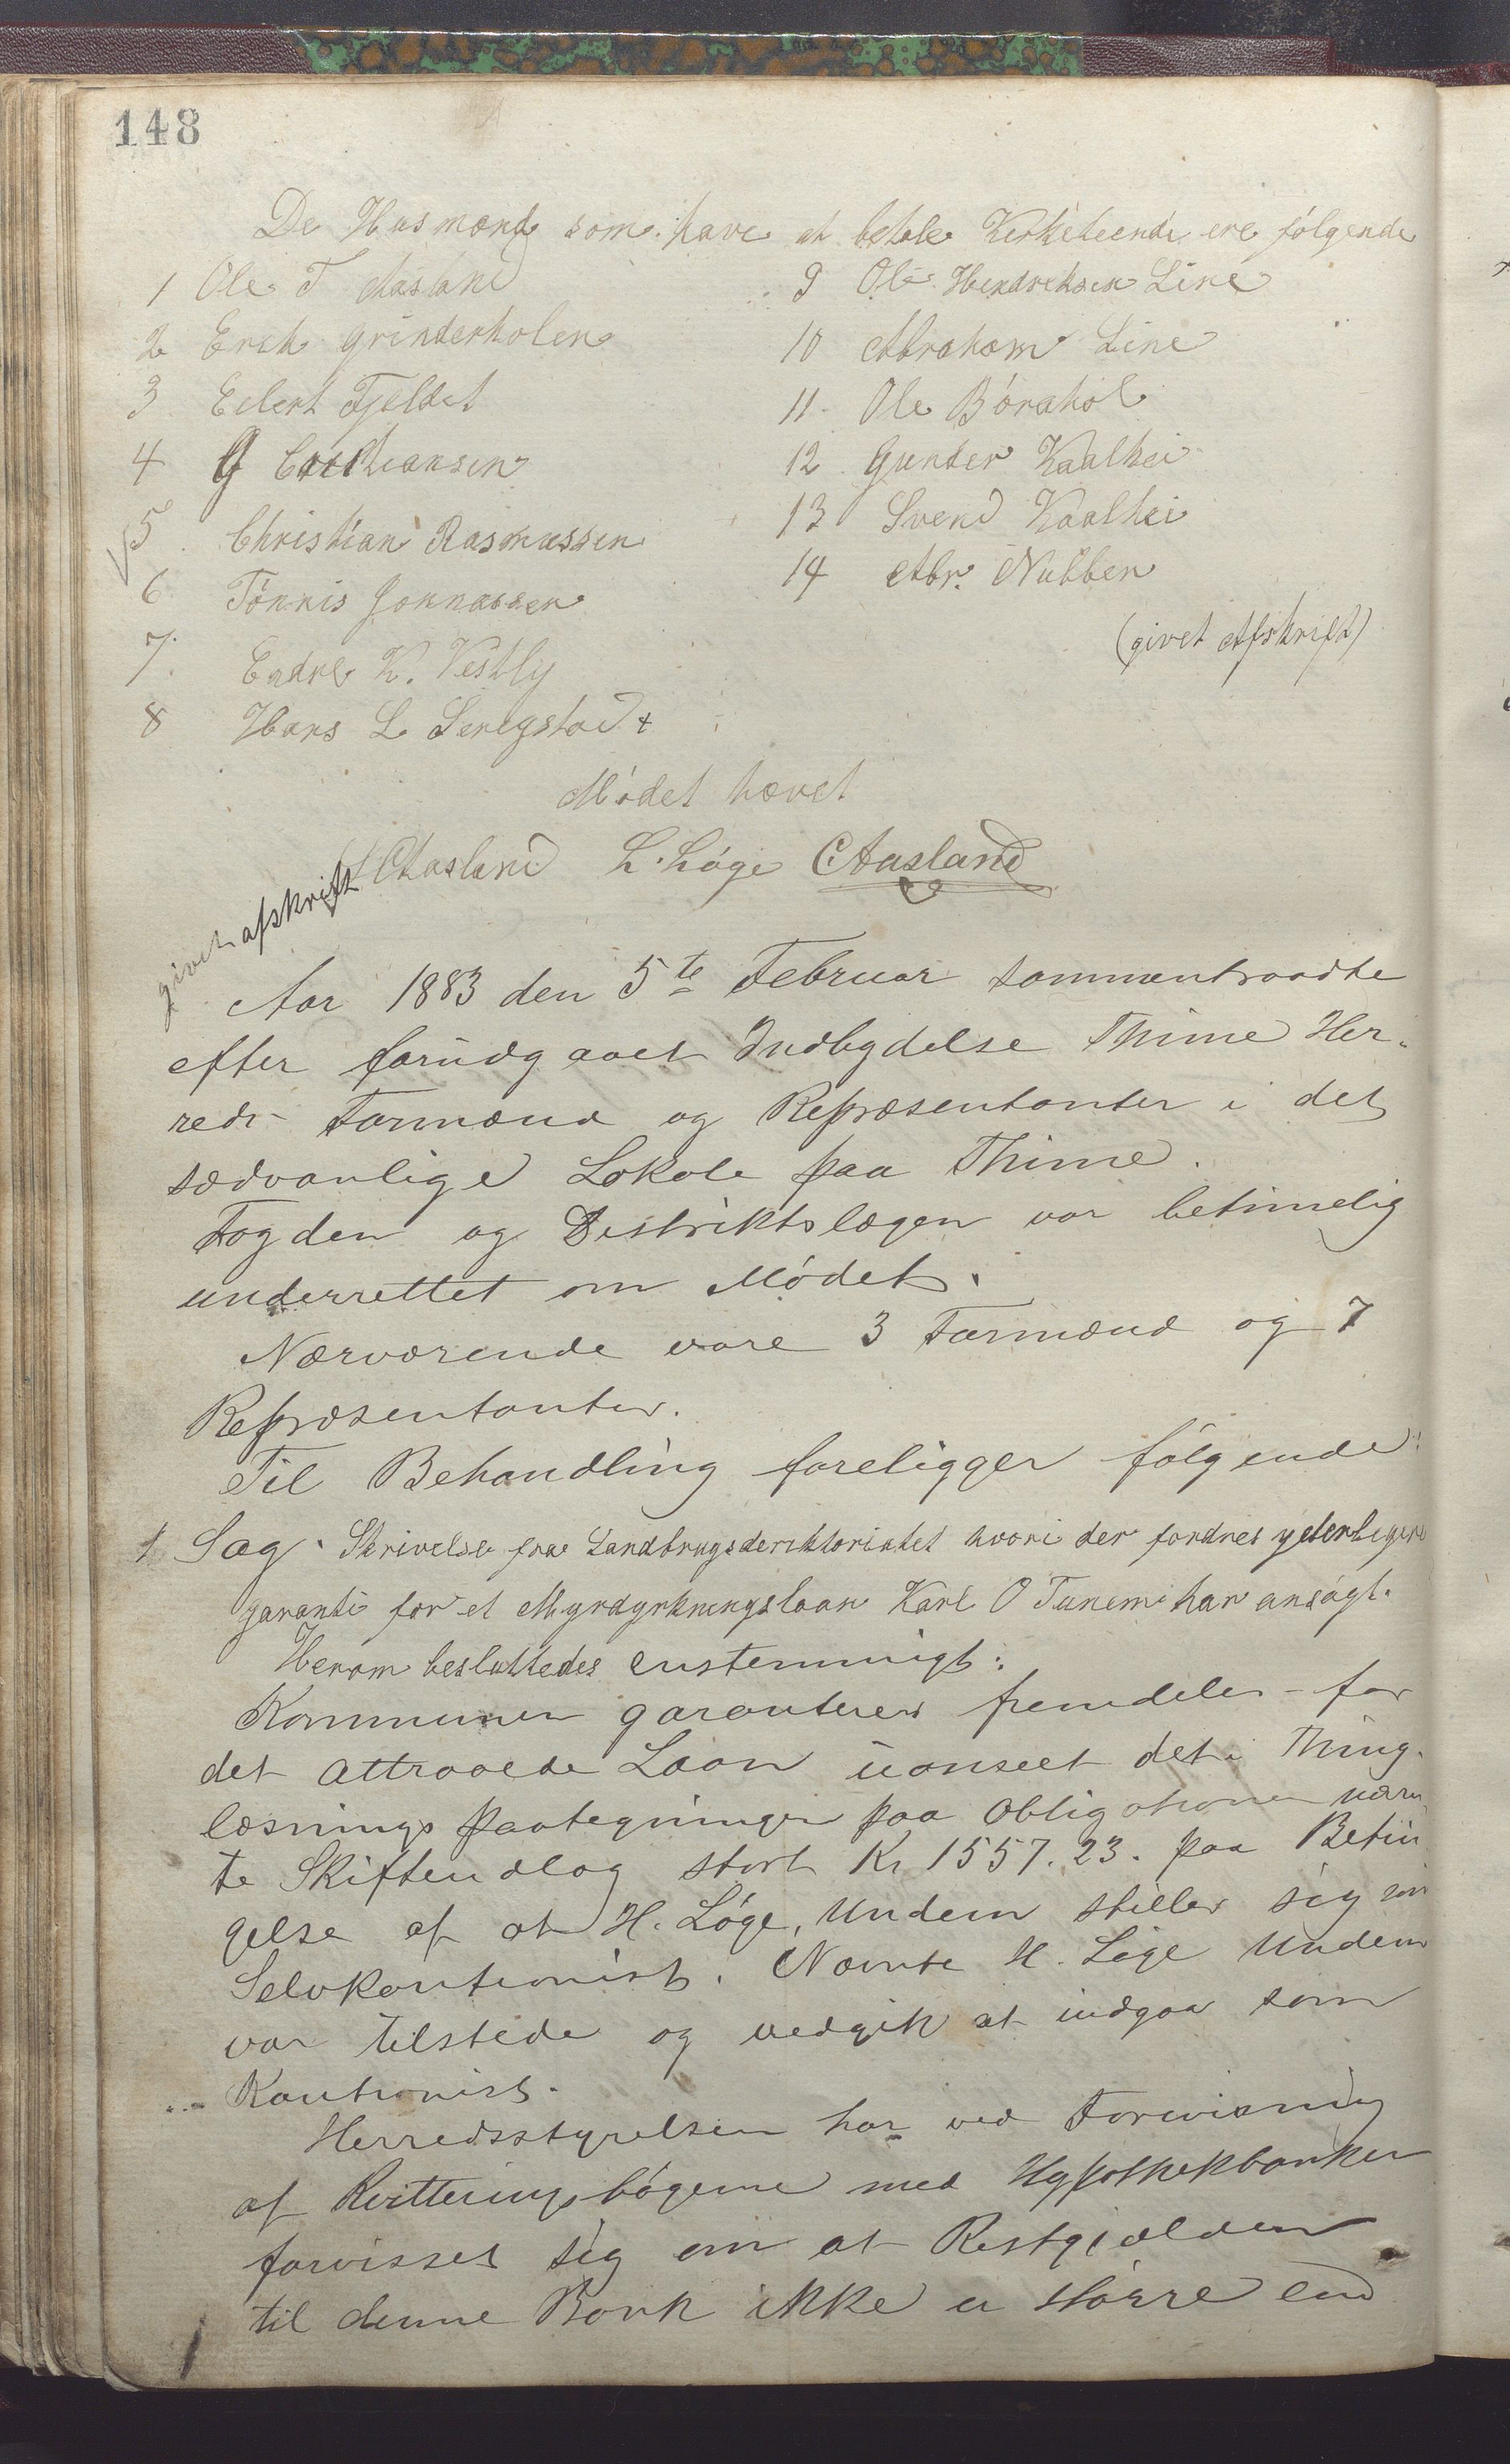 148
De Husmænd som have at betale Kirketiende ere følgende
1 Ole T Aasland
2 Erik Grinderholen
3 Eilert Fjeldet
4 G
5 Christian Rasmussen
6 Tönnis Jonnassen
7. Endre K. Vestly
8 Hans L Seregstad +
9 Ole Hendreksen Line
10 Abraham Line
11. Ole Börahol
12 Gunder Kaalhei
13 Svend Kaalhei
14 Abr. Nubben
(givet Afskrift)
Mödet hævet
Aasland L. Löge C Aasland
givet afskrift
Aar 1883 den 5te Februar sammentraadte
efter forudgaaet Indbydelse Thime Her-
reds Formænd og Repræsentanter i det
sædvanlige Lokale paa Thime.
Fogden og Distriktslægen var betimelig
underrettet om Mödet.
Nærværende vare 3 Formænd og 7
Repræsentanter.
Til Behandling foreligger fölgende:
1 Sag. Skrivelse fra Landbrugsderektoriatet hvori der fordres yderligere
garanti for et Myrdyrkningslaan Karl O Tunem har ansögt.
Herom besluttedes enstemmigt:
Kommunen garanterer fremdeles for
det attraaede Laan uanseet det i Thing-
læsnings paategningen paa Obligationen nævn
te Skifteudlæg stort Kr 1557.23. paa Betin
gelse af at H. Löge, Undem stiller sig som
Selvkautionist. Nævnte H. Löge Undem
var tilstede og vedgik at indgaa som
Kautionist.
Herredsstyrelsen har ved Forevisning
af Kvitteringsbögerne med Hypothekbanken
forvisset sig om at Restgjælden
til denne Bank ikke er större end